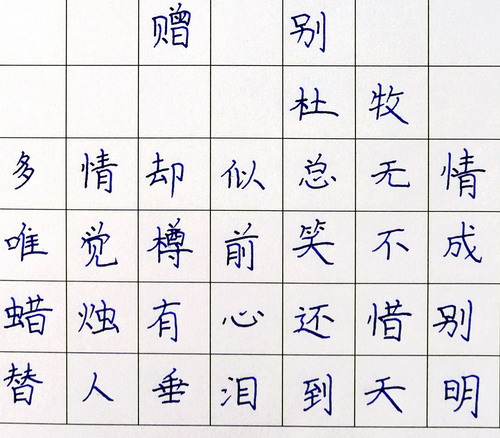 赠别
杜牧
多情却似总无情
唯觉樽前笑不成
蜡烛有心还惜别
替人垂泪到天明